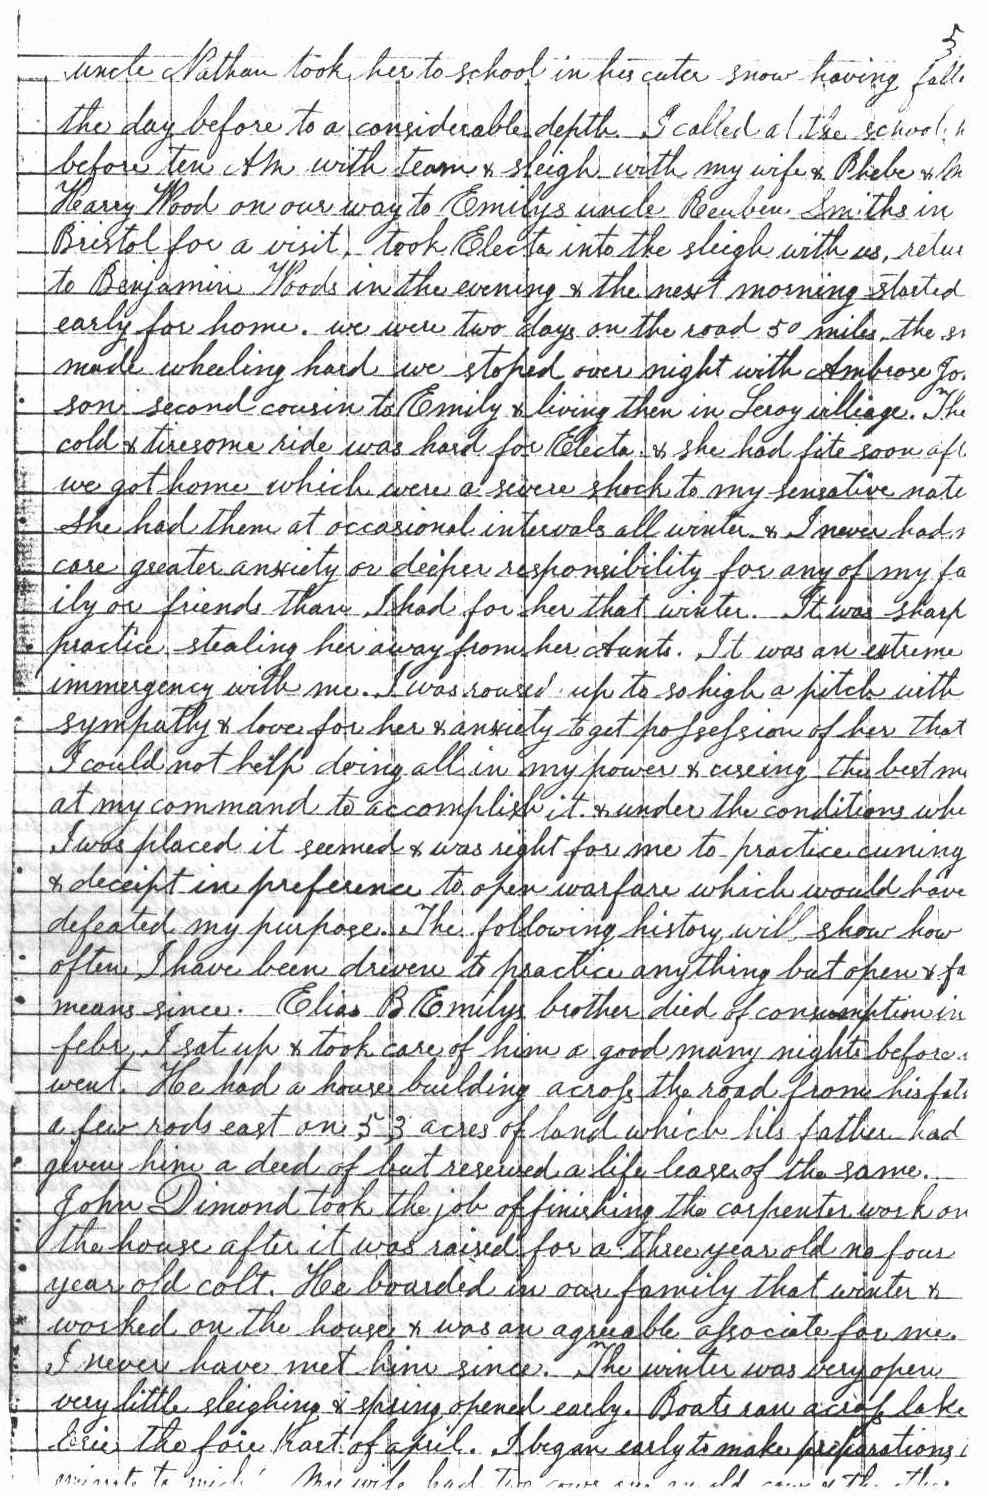 5
uncle Nathan took her to school in his cuter snow having falle
the day before to a considerable depth. I called at the school h
before ten AM with team & sleigh with my wife & Phebe & M
Harry Wood on our way to Emilys uncle Reuben Smiths in
Bristol for a visit. took Electa into the sleigh with us, retur
to Benjamin Woods in the evening & the next morning started
early for home. we were two days on the road 50 miles, the sn
made wheeling hard we stoped over night with Ambrose Jo
son second cousin to Emily & living then in Leroy villiage. The
cold & tiresome ride was hard for Electa & she had fits soon aft
we got home which were a severe shock to my sensative natu
she had them at occasional intervals all winter & I never had m
care greater anxiety or deeper responsibility for any of my fa
ily or friends than I had for her that winter. It was sharp
practice stealing her away from her Aunts. It was an extreme
immergency with me. I was roused up to so high a pitch with
sympathy & love for her & anxiety to get possession of her that
I could not help doing all in my power & useing the best me
at my command to accomplish it & under the conditions whe
I was placed it seemed & was right for me to practice cuning
& deceipt in preference to open warfare which would have
defeated my purpose. The following history will show how
often I have been driven to practice anything but open & fa
means since. Elias B Emilys brother died of consumption in
febr, I sat up & took care of him a good many nights before
went. He had a house building across the road from his fath
a few rods east on 53 acres of land which his father had
given him a deed of but reserved a life lease of the same.
John Dimond took the job of finishing the carpenter work on
the house after it was raised for a three year old no four
year old colt. He boarded in our family that winter &
worked on the house & was an agreable associate for me.
I never have met him since. The winter was very open
very little sleighing & spring opened early. Boats ran across lake
Erie the fore part of april. I began early to make preparations
to mich. My wife had two cows